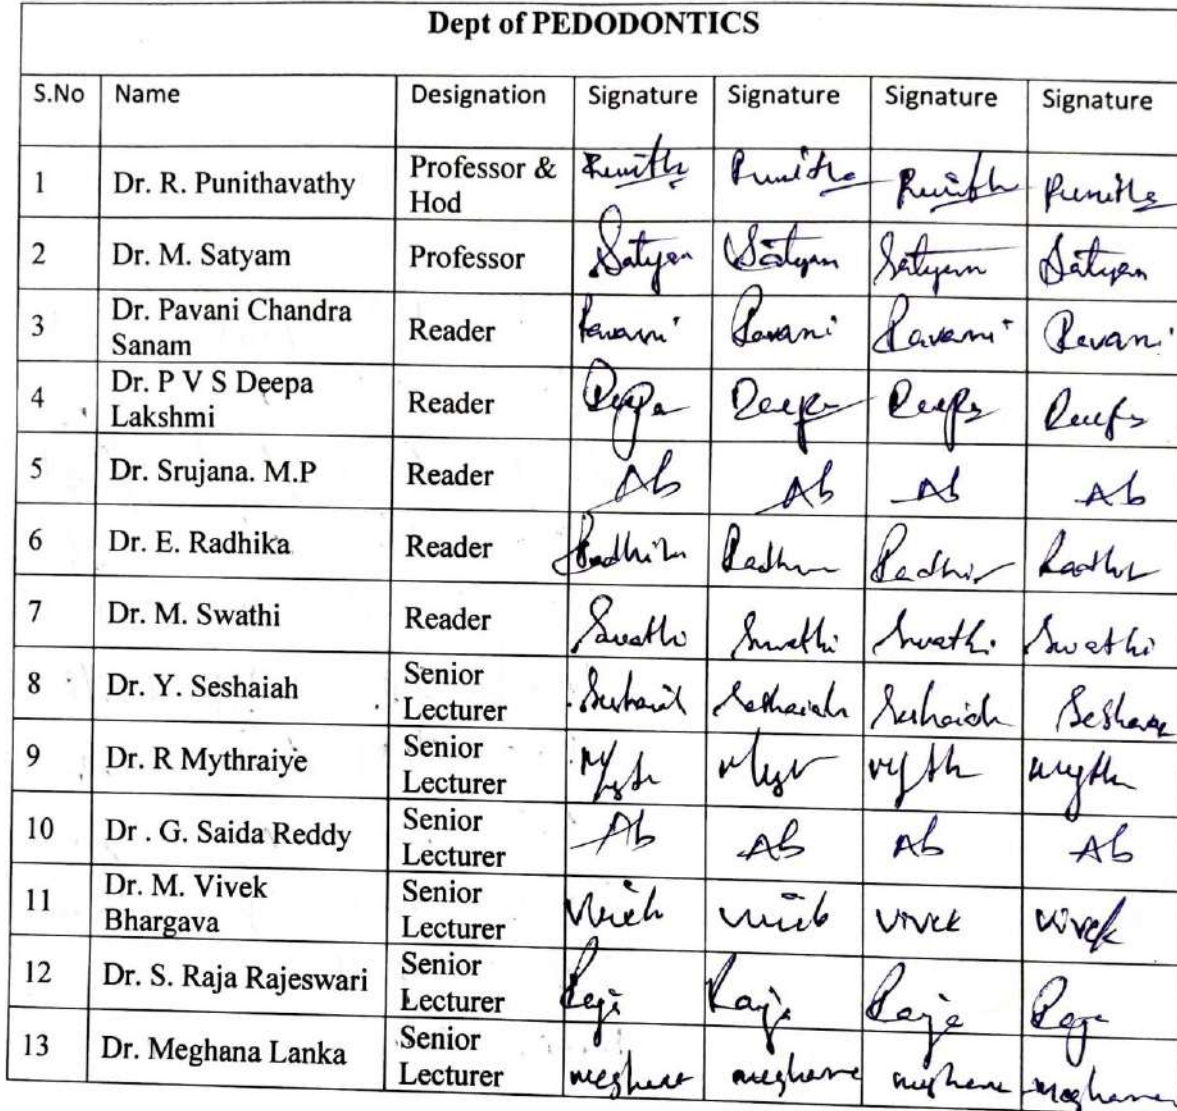 Dept of PEDODONTICS
S.No Name Designation Signature Signature Signature Signature
1 Dr. R. Punithavathy Professor & Hod Punith Punitha Punith Punitha
2 Dr. M. Satyam Professor Satyam Satyam Satyam Satyam
3 Dr. Pavani Chandra Sanam Reader Pavani Pavani Pavani Pavani
4 Dr. P V S Deepa Lakshmi Reader Deepa Deepa Deepa Deepa
5 Dr. Srujana. M.P Reader Ab Ab Ab Ab
6 Dr. E. Radhika Reader Radhika
7 Dr. M. Swathi Reader Swathi Swathi Swathi Swathi
8 Dr. Y. Seshaiah Senior Lecturer Seshaiah Seshaiah
9 Dr. R Mythraiye Senior Lecturer Myth
10 Dr . G. Saida Reddy Senior Lecturer Ab Ab Ab Ab
11 Dr. M. Vivek Bhargava Senior Lecturer Vivek Vivek
12 Dr. S. Raja Rajeswari Senior Lecturer Raja Raja Raja Raja
13 Dr. Meghana Lanka Senior Lecturer meghana meghana meghana meghana